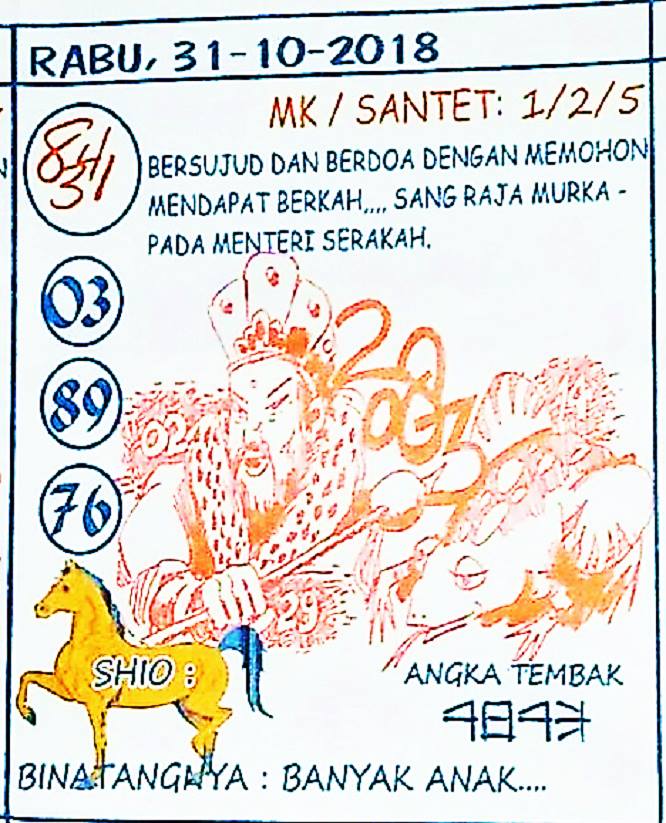 RABU, 31-10-2018
MK / SANTET: 1/2/5
BERSUJUD DAN BERDOA DENGAN MEMOHON
MENDAPAT BERKAH,,,, SANG RAJA MURKA -
PADA MENTERI SERAKAH.
03
89
76
29
SHIO :
ANGKA TEMBAK
BINATANGNYA : BANYAK ANAK....